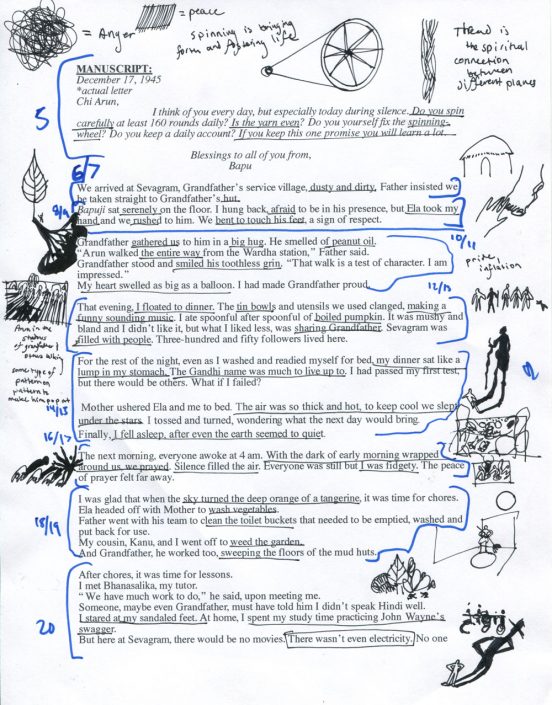 = Anger
= peace
spinning is bringing
form and ordering life
Thread is
the spiritual
connection
between
different planes
MANUSCRIPT:
December 17, 1945
*actual letter
Chi Arun,
I think of you every day, but especially today during silence. Do you spin
carefully at least 160 rounds daily? Is the yarn even? Do you yourself fix the spinning-
wheel? Do you keep a daily account? If you keep this one promise you will learn a lot.
Blessings to all of you from,
Bapu
5
6/7
We arrived at Sevagram, Grandfather's service village, dusty and dirty, Father insisted we
be taken straight to Grandfather's hut.
8/9
Bapuji sat serenely on the floor. I hung back, afraid to be in his presence, but Ela took my
hand and we rushed to him. We bent to touch his feet, a sign of respect.
10/11
Grandfather gathered us to him in a big hug. He smelled of peanut oil.
"Arun walked the entire way from the Wardha station," Father said.
Grandfather stood and smiled his toothless grin. "That walk is a test of character. I am
impressed."
My heart swelled as big as a balloon. I had made Grandfather proud.
pride,
inflation
12/13
That evening, I floated to dinner. The tin bowls and utensils we used clanged, making a
funny sounding music. I ate spoonful after spoonful of boiled pumpkin. It was mushy and
bland and I didn't like it, but what I liked less, was sharing Grandfather. Sevagram was
filled with people. Three-hundred and fifty followers lived here.
Arun in the
shadows
of grandfather &
others talking
some type of
pattern on
pattern to
make him pop out
14/15
For the rest of the night, even as I washed and readied myself for bed, my dinner sat like a
lump in my stomach. The Gandhi name was much to live up to. I had passed my first test,
but there would be others. What if I failed?
Mother ushered Ela and me to bed. The air was so thick and hot, to keep cool we slept
under the stars. I tossed and turned, wondering what the next day would bring.
16/17
Finally, I fell asleep, after even the earth seemed to quiet.
The next morning, everyone awoke at 4 am. With the dark of early morning wrapped
around us, we prayed. Silence filled the air. Everyone was still but I was fidgety. The peace
of prayer felt far away.
18/19
I was glad that when the sky turned the deep orange of a tangerine, it was time for chores.
Ela headed off with Mother to wash vegetables.
Father went with his team to clean the toilet buckets that needed to be emptied, washed and
put back for use.
My cousin, Kanu, and I went off to weed the garden.
And Grandfather, he worked too, sweeping the floors of the mud huts.
20
After chores, it was time for lessons.
I met Bhanasalika, my tutor.
" We have much work to do," he said, upon meeting me.
Someone, maybe even Grandfather, must have told him I didn't speak Hindi well.
I stared at my sandaled feet. At home, I spent my study time practicing John Wayne's
swagger.
But here at Sevagram, there would be no movies. There wasn't even electricity. No one